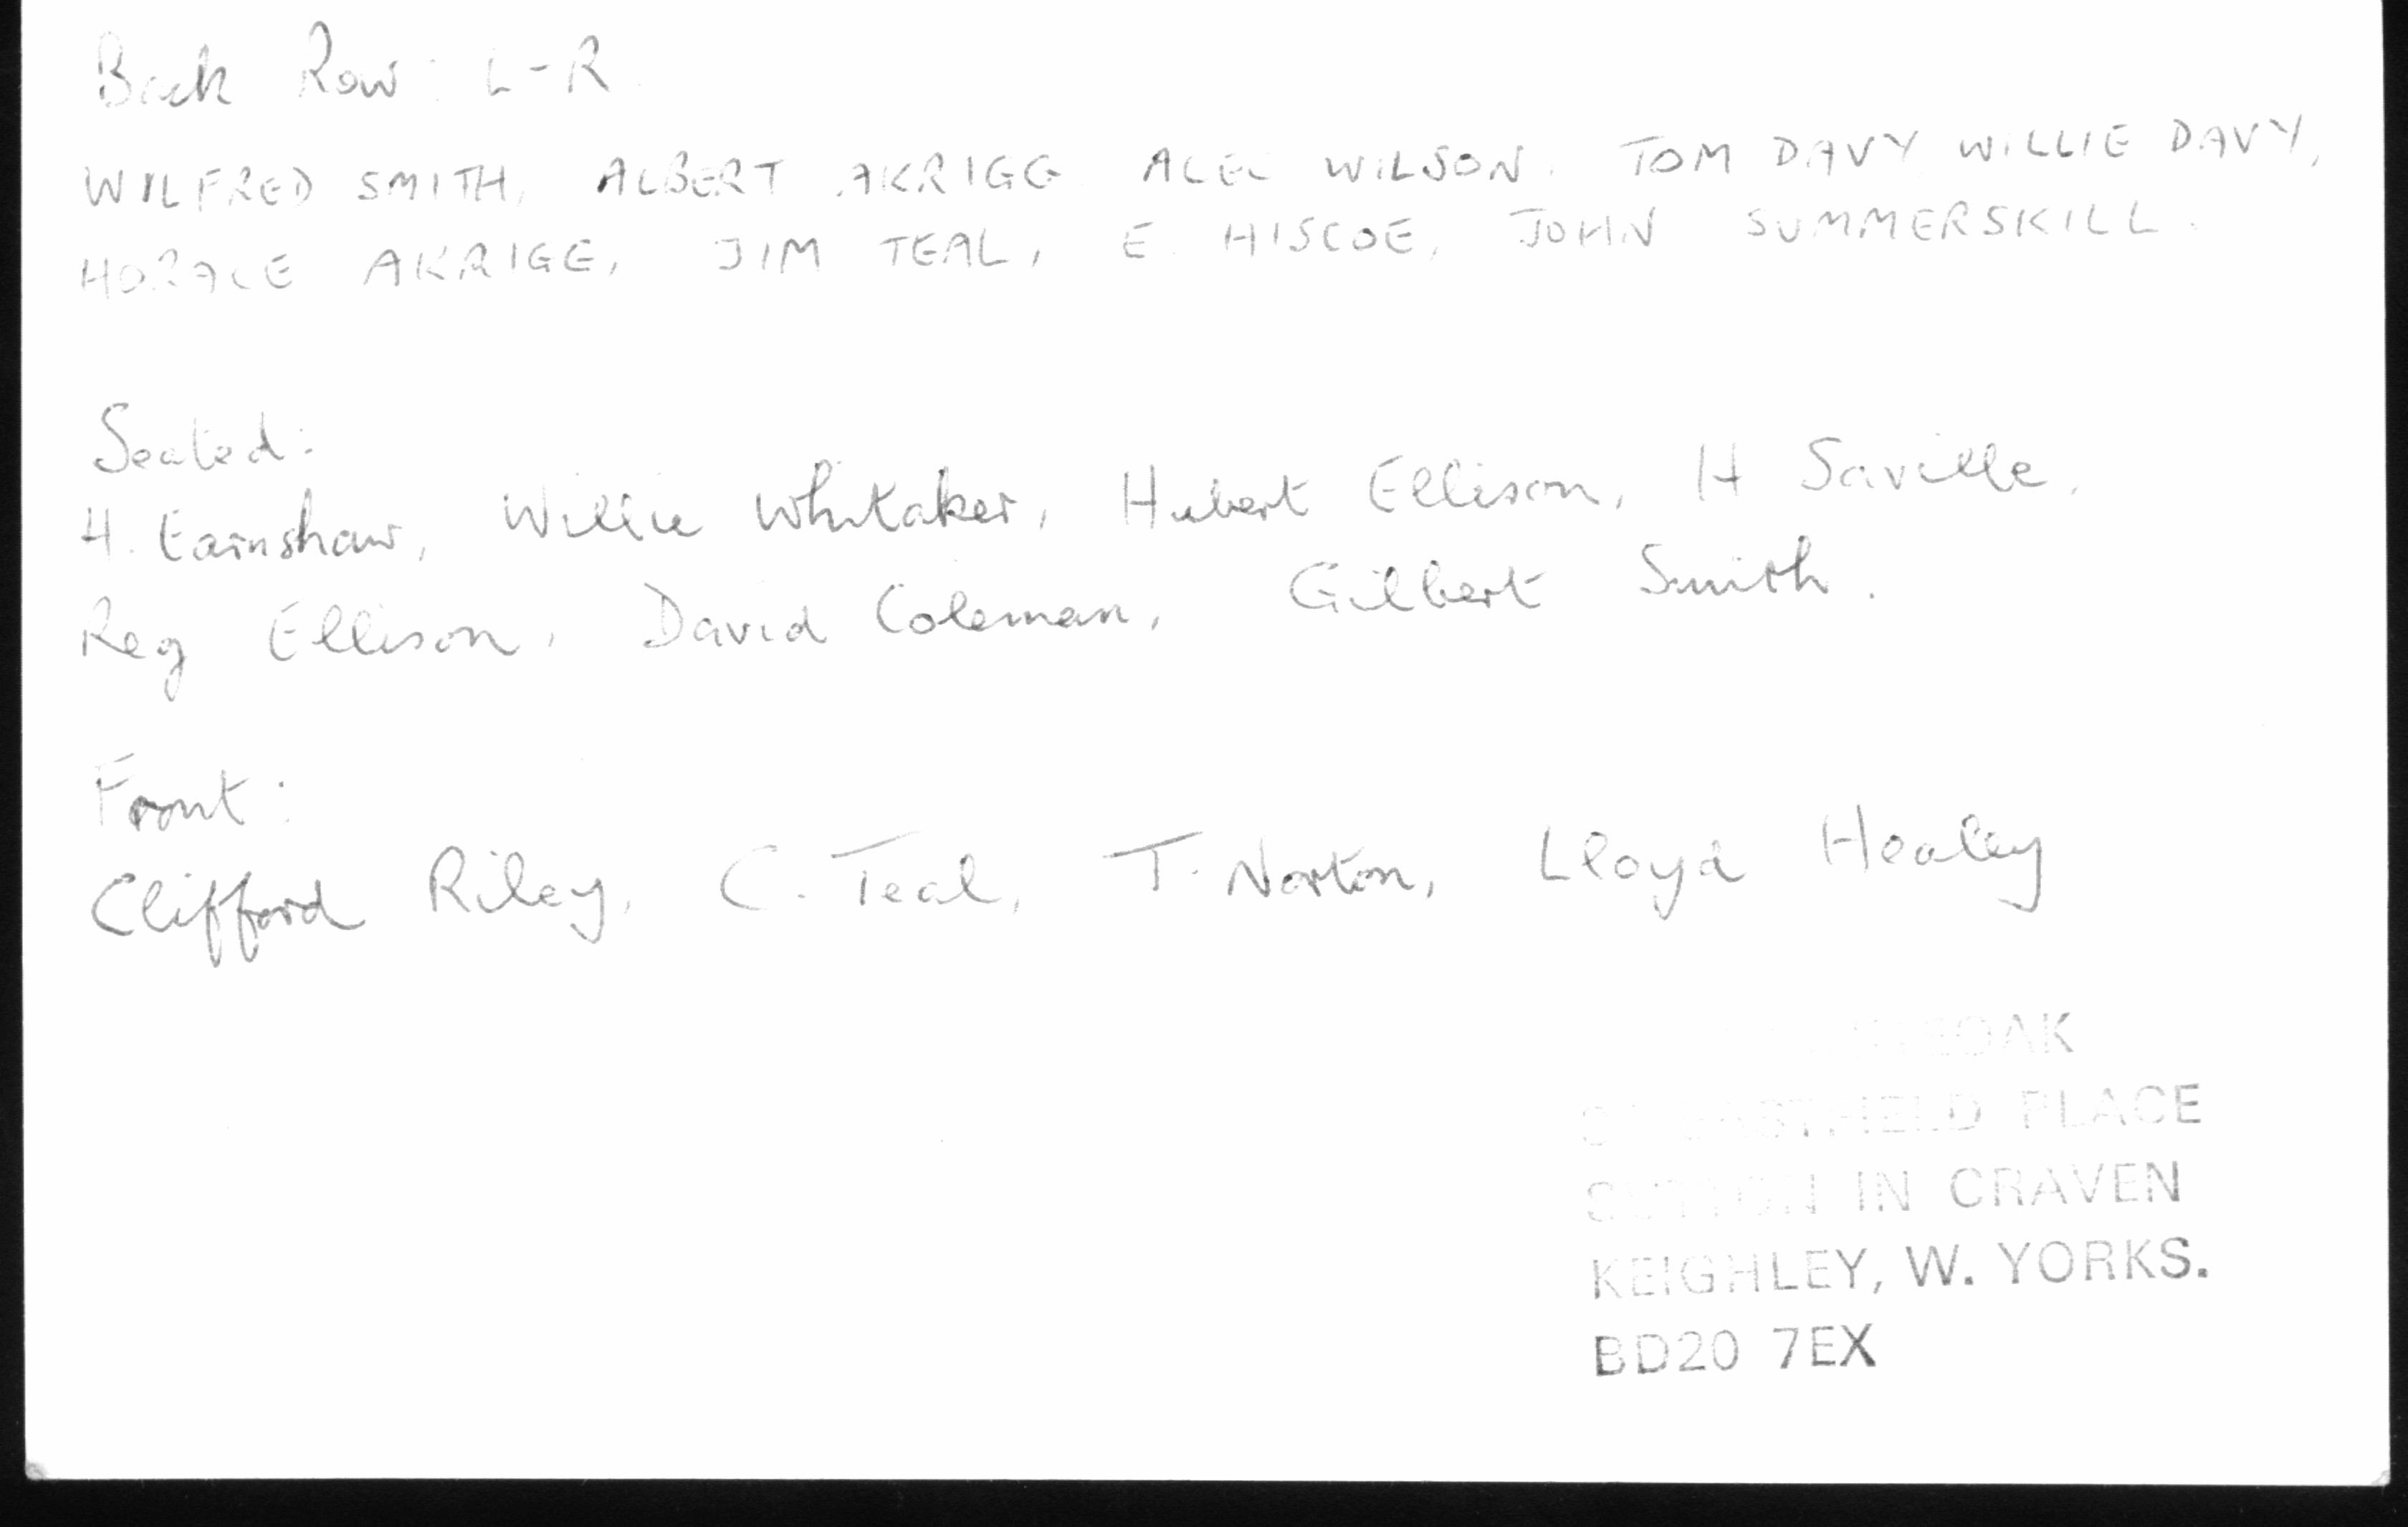 Back Row: L-R
WILFRED SMITH, ALBERT AKRIGG ALEC WILSON. TOM DAVY WILLIE DAVY,
HORACE AKRIGG, JIM TEAL, E. HISCOE, JOHN SUMMERSKILL.
Seated:
H. Earnshaw, Willie Whitaker, Hubert Ellison, H Saville,
Reg Ellison, David Coleman, Gilbert Smith.
Front:
Clifford Riley, C. Teal, T. Norton, Lloyd Healey
PLACE
SUTTON IN CRAVEN
KEIGHLEY, W. YORKS.
BD20 7EX